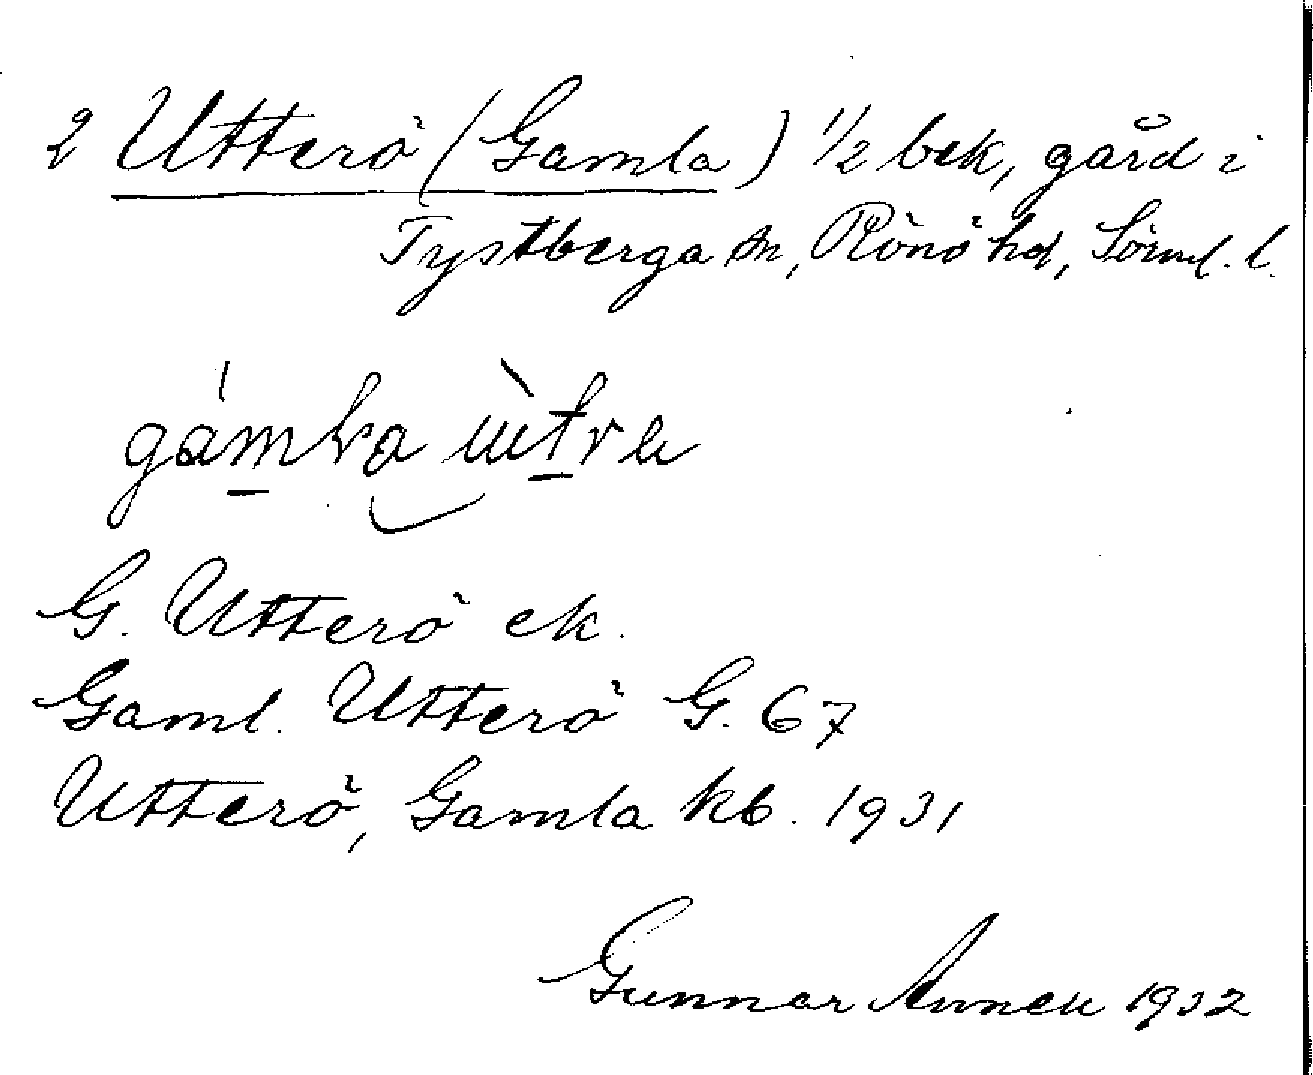 2 Utterö (Gamla) 1/2 bek, gård i
Tystberga sn, Rönö hd, Sörml. l.
G. Utterö ek.
Gaml. Utterö G. 67
Utterö, Gamla kb. 1931
Gunnar 1932